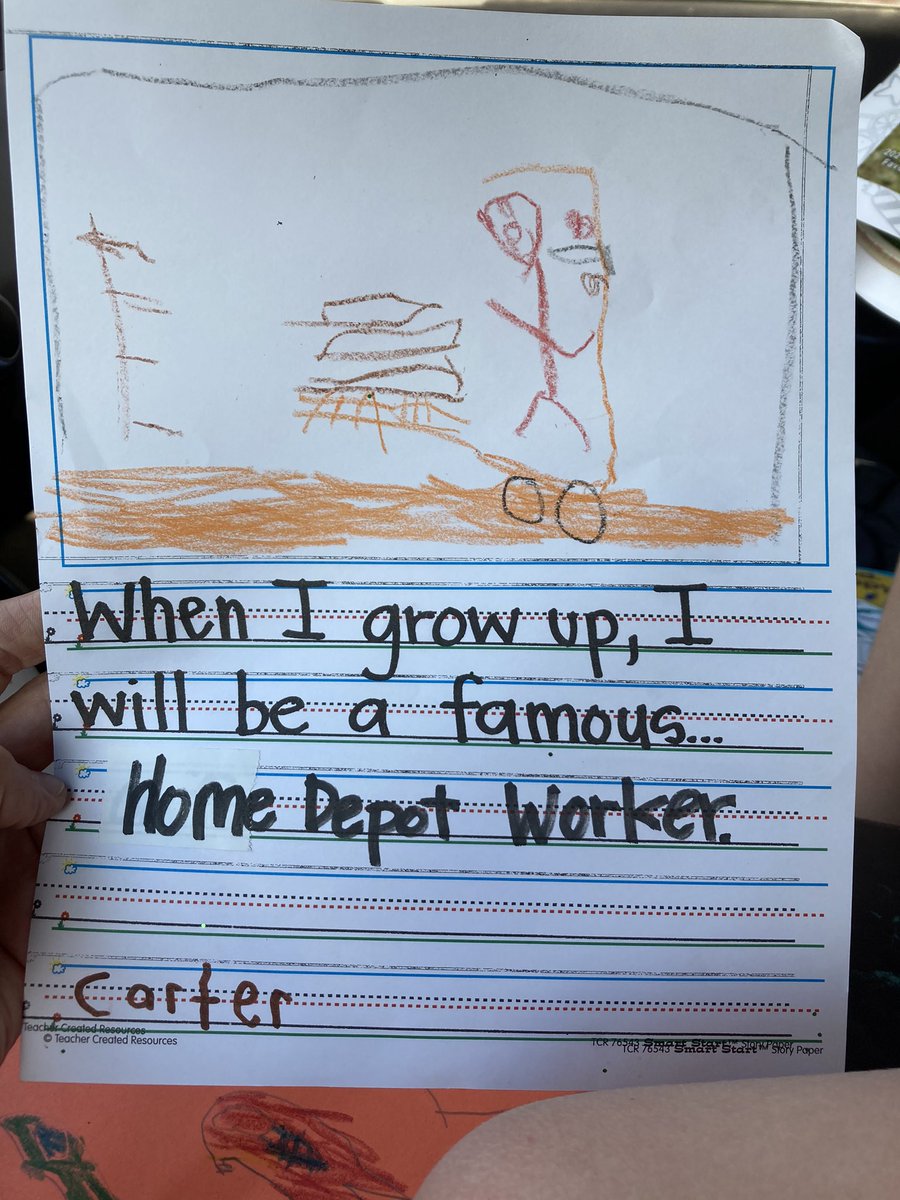 When I grow up, I
will be a famous...
Home Depot Worker.
Carter
Teacher Created Resources
© Teacher Created Resources
TCR 76543 Smart Start™ Story Paper
TCR 76543 Smart Start™ Story Paper